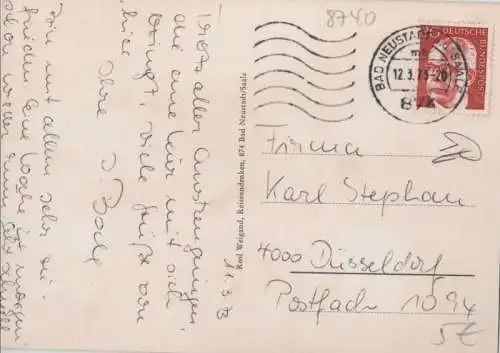 8740
BAD NEUSTADT, SAALE
12.3.73-20
874
DEUTSCHE BUNDESPOST
Firma
Karl Stephan
4000 Düsseldorf
Postfach 1094
5€
Rand Weigand, Reiseandenken, 874 Bad Neustadt/Saale
11.3.73
Bin mit allem sehr zu-
frieden. Eine Woche ist morgen
schon wieder
Trotz aller Anstrengungen,
die eine Kur mit sich
bringt, viele Grüße von
hier Ihre